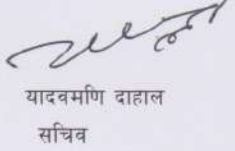 यादवमणि दाहाल
सचिव